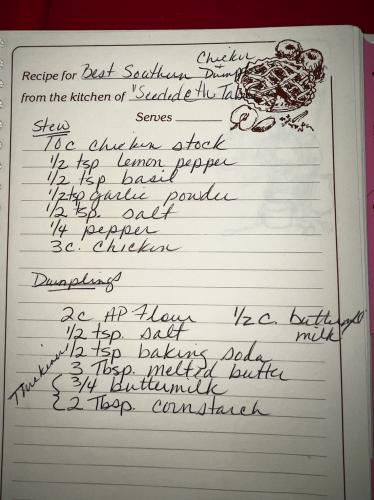 Recipe for Best Southern Chicken + Dumpl
from the kitchen of "Seeded @ the Table
Serves
Stew
10 c chicken stock
1/2 tsp lemon pepper
1/2 tsp basil
1/2 tsp garlic powder
1/2 tsp. salt
1/4 pepper
3 c. chicken
Dumplings
2c AP Flour 1/2 c. buttermilk
1/2 tsp. salt
1/2 tsp baking soda
3 Tbsp. melted butter
3/4 buttermilk
2 Tbsp. cornstarch